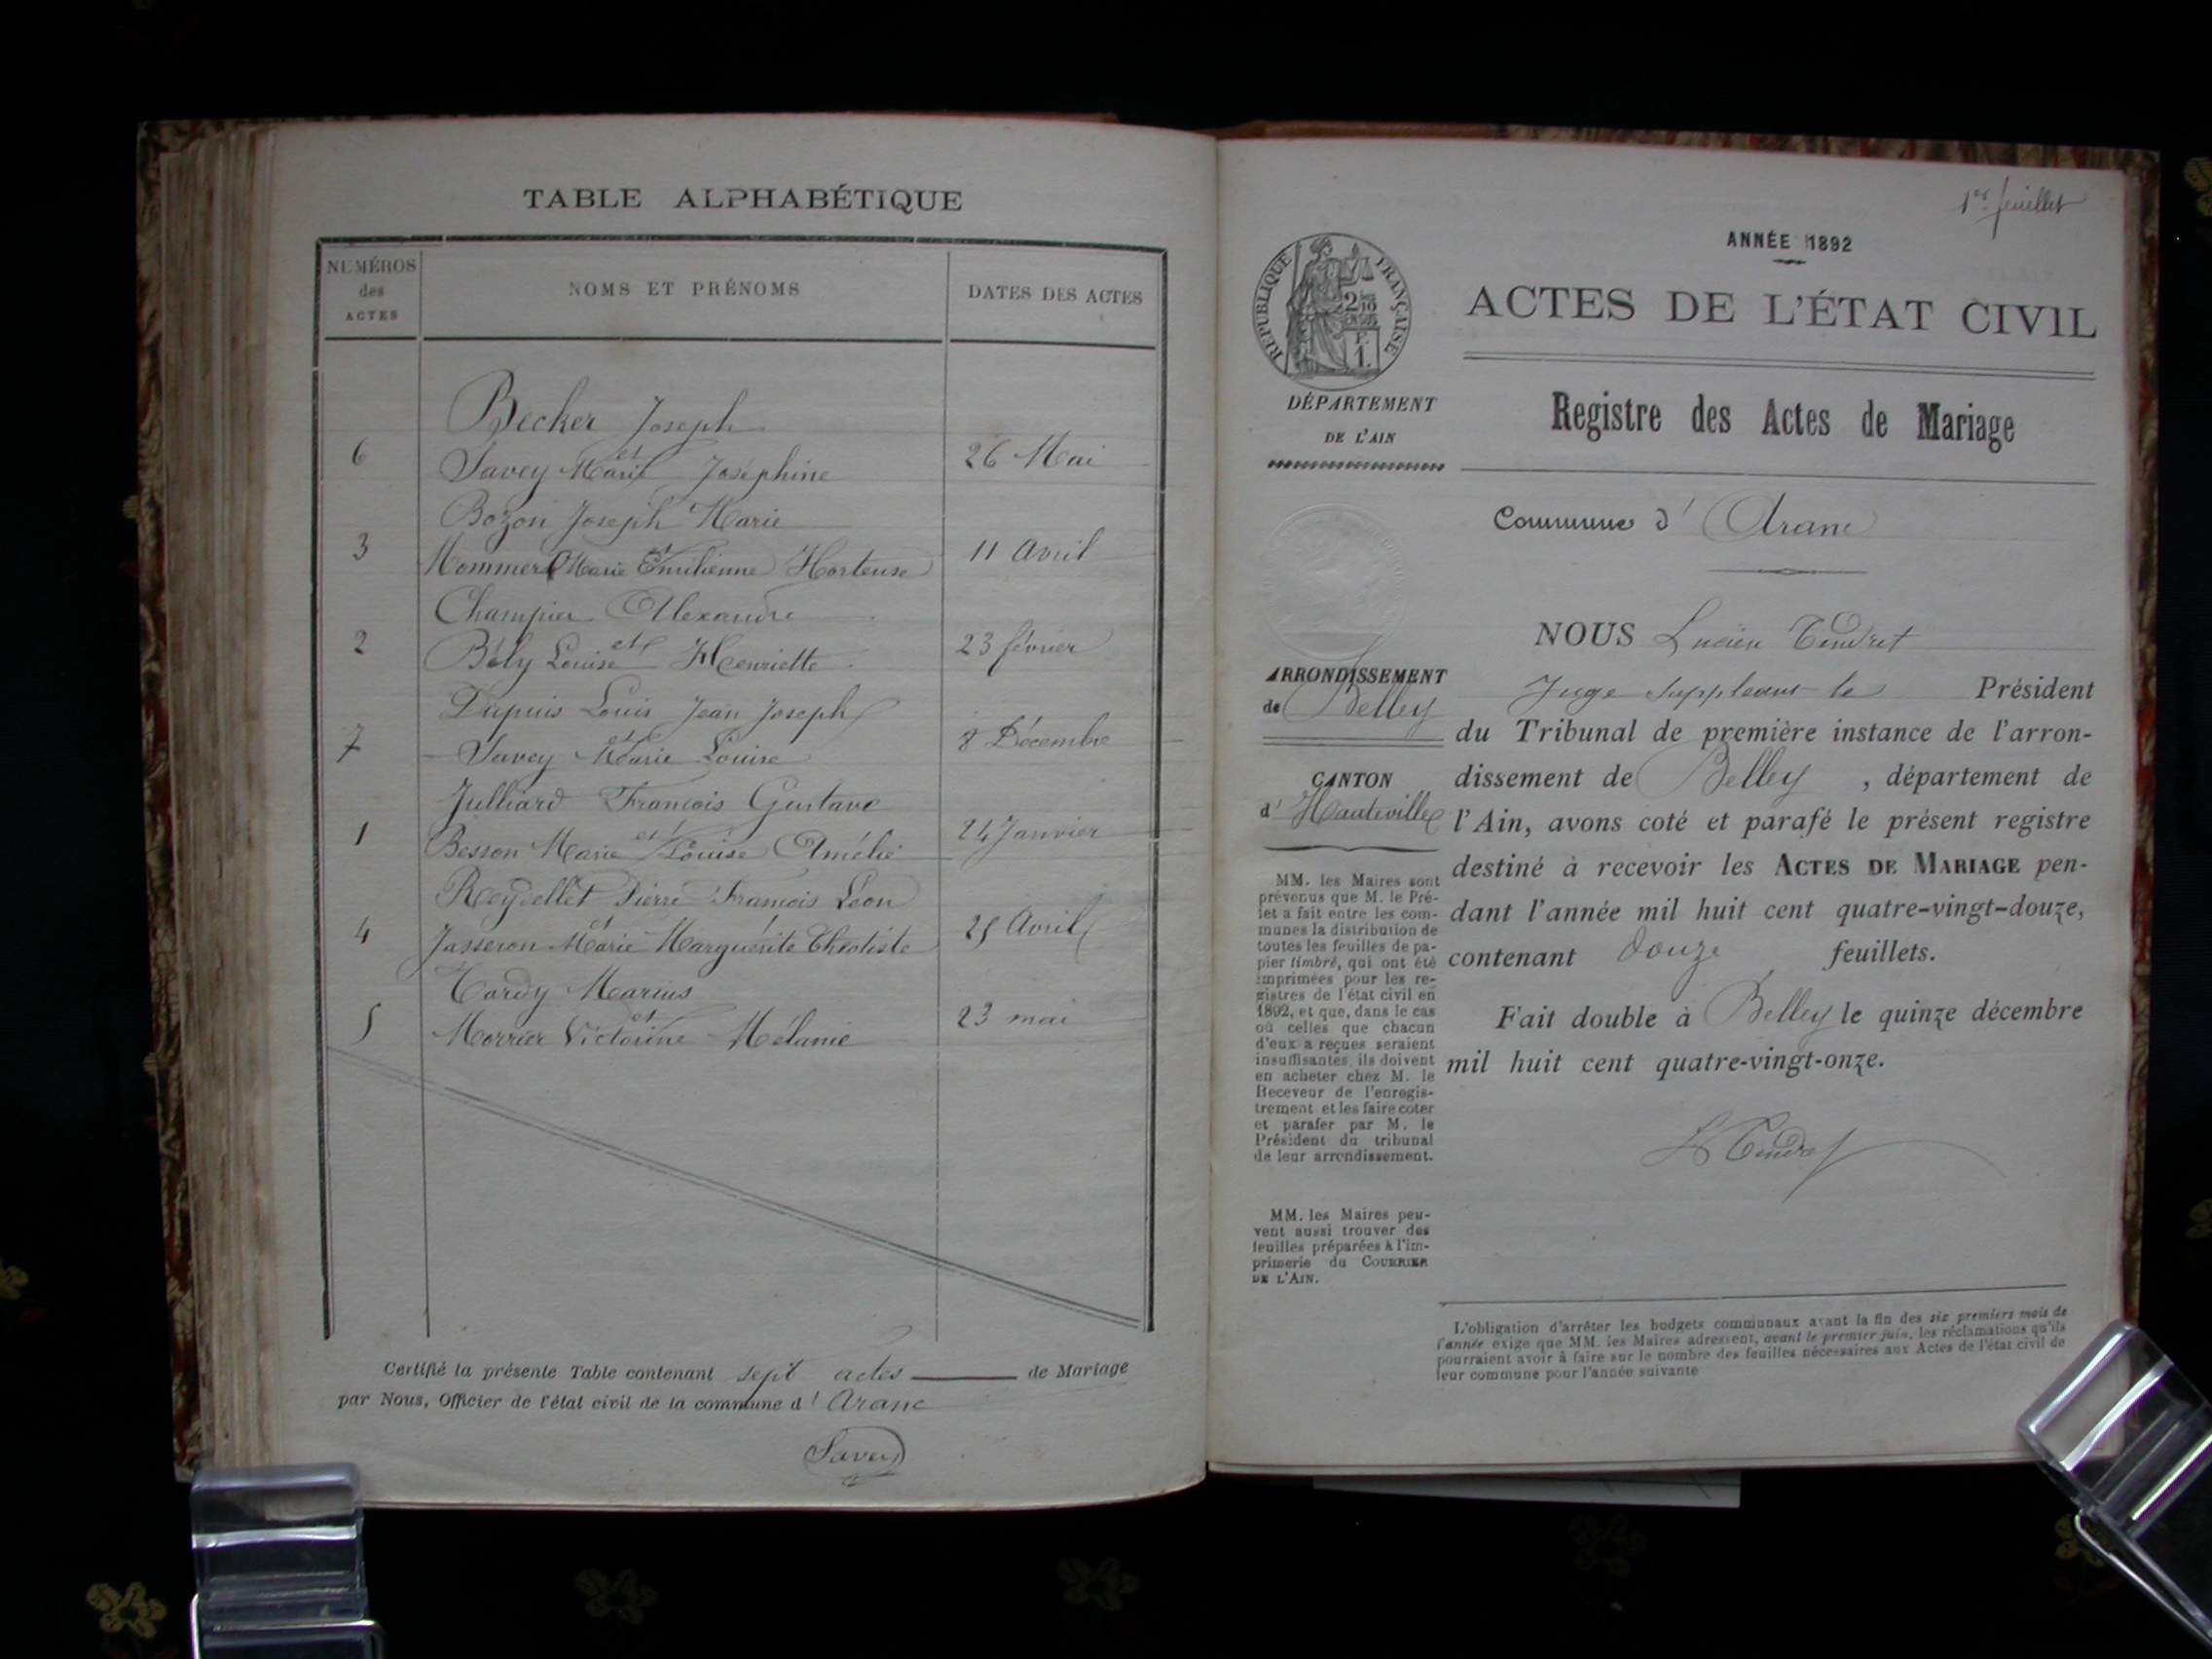 TABLE ALPHABÉTIQUE
NUMÉROS
des
ACTES
NOMS ET PRÉNOMS
DATES DES ACTES
Becker Joseph
et
6 Savey Marie Joséphine 26 Mai
Bozon Joseph Marie
et
3 Mommer Marie Emilienne Hortense 11 Avril
Champier Alexandre
et
2 Bély Louise Henriette 23 février
Dupuis Louis Jean Joseph
et
7 Savey Marie Louise 8 Décembre
Julliard François Gustave
et
1 Besson Marie Louise Amélie 24 Janvier
Reydellet Pierre François Léon
et
4 Jasseron Marie Marguérite Théotiste 25 Avril
Tardy Marius
et
5 Morrier Victorine Mélanie 23 mai
Certifié la présente Table contenant sept actes de Mariage
par Nous, Officier de l'état civil de la commune d' Aranc
Savey
1er feuillet
ANNÉE 1892
RÉPUBLIQUE FRANÇAISE
ACTES DE L'ÉTAT CIVIL
DÉPARTEMENT
DE L'AIN
Registre des Actes de Mariage
Commune d' Aranc
NOUS Lucien Tendret
Juge suppléant le Président
du Tribunal de première instance de l'arron-
dissement de Belley, département de
l'Ain, avons coté et parafé le présent registre
destiné à recevoir les ACTES DE MARIAGE pen-
dant l'année mil huit cent quatre-vingt-douze,
contenant douze feuillets.
Fait double à Belley le quinze décembre
mil huit cent quatre-vingt-onze.
L Tendret
ARRONDISSEMENT
de Belley
CANTON
d' Hauteville
MM. les Maires sont
prévenus que M. le Pré-
fet a fait entre les com-
munes la distribution de
toutes les feuilles de pa-
pier timbré, qui ont été
imprimées pour les re-
gistres de l'état civil en
1892, et que, dans le cas
où celles que chacun
d'eux a reçues seraient
insuffisantes, ils doivent
en acheter chez M. le
Receveur de l'enregis-
trement et les faire coter
et parafer par M. le
Président du tribunal
de leur arrondissement.
MM. les Maires peu-
vent aussi trouver des
feuilles préparées à l'im-
primerie du COURRIER
DE L'AIN.
L'obligation d'arrêter les budgets communaux avant la fin des six premiers mois de
l'année exige que MM. les Maires adressent, avant le premier juin, les réclamations qu'ils
pourraient avoir à faire sur le nombre des feuilles nécessaires aux Actes de l'état civil de
leur commune pour l'année suivante